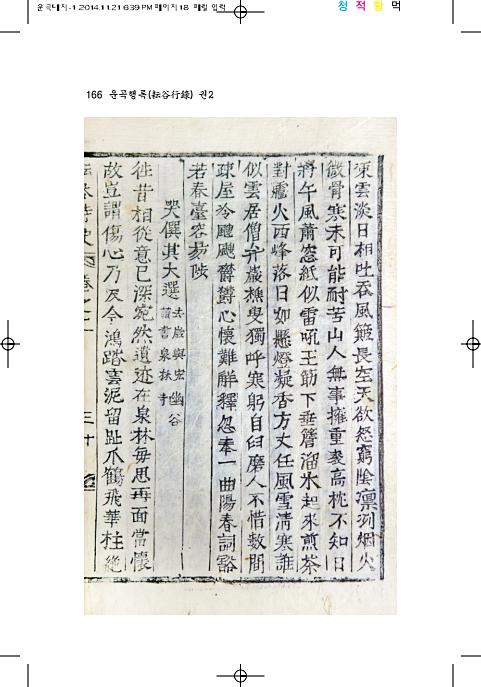 운곡내지-1 2014.11.21 6:39 PM 페이지18 매킬 입력
청 적 황 먹
166 운곡행록(耘谷行錄) 권2
凍雲淡日相吐吞風簸長空天欲怒窮陰凜冽烟火
徹骨寒未可能耐苦山人無事擁重衾高枕不知日
將午風肅窓紙似雷吼玉筯下垂簷溜氷起來煎茶
對爐火西峰落日如懸燈凝香方丈任風雪淸寒誰
似雲居僧弁巖樵叟獨呼寒躬自臼磨人不惜數間
疎屋冷颼颼欝欝心懷難解釋忽奉一曲陽春詞豁
若春臺容易陟
哭僎其大選 去歲與宏幽谷
讀書泉扶寺
徃昔相從意已深宛然遺迹在泉林每思再面當懷
故豈謂傷心乃及今鴻踏雲泥留趾爪鶴飛華柱絶
卷之二
三十